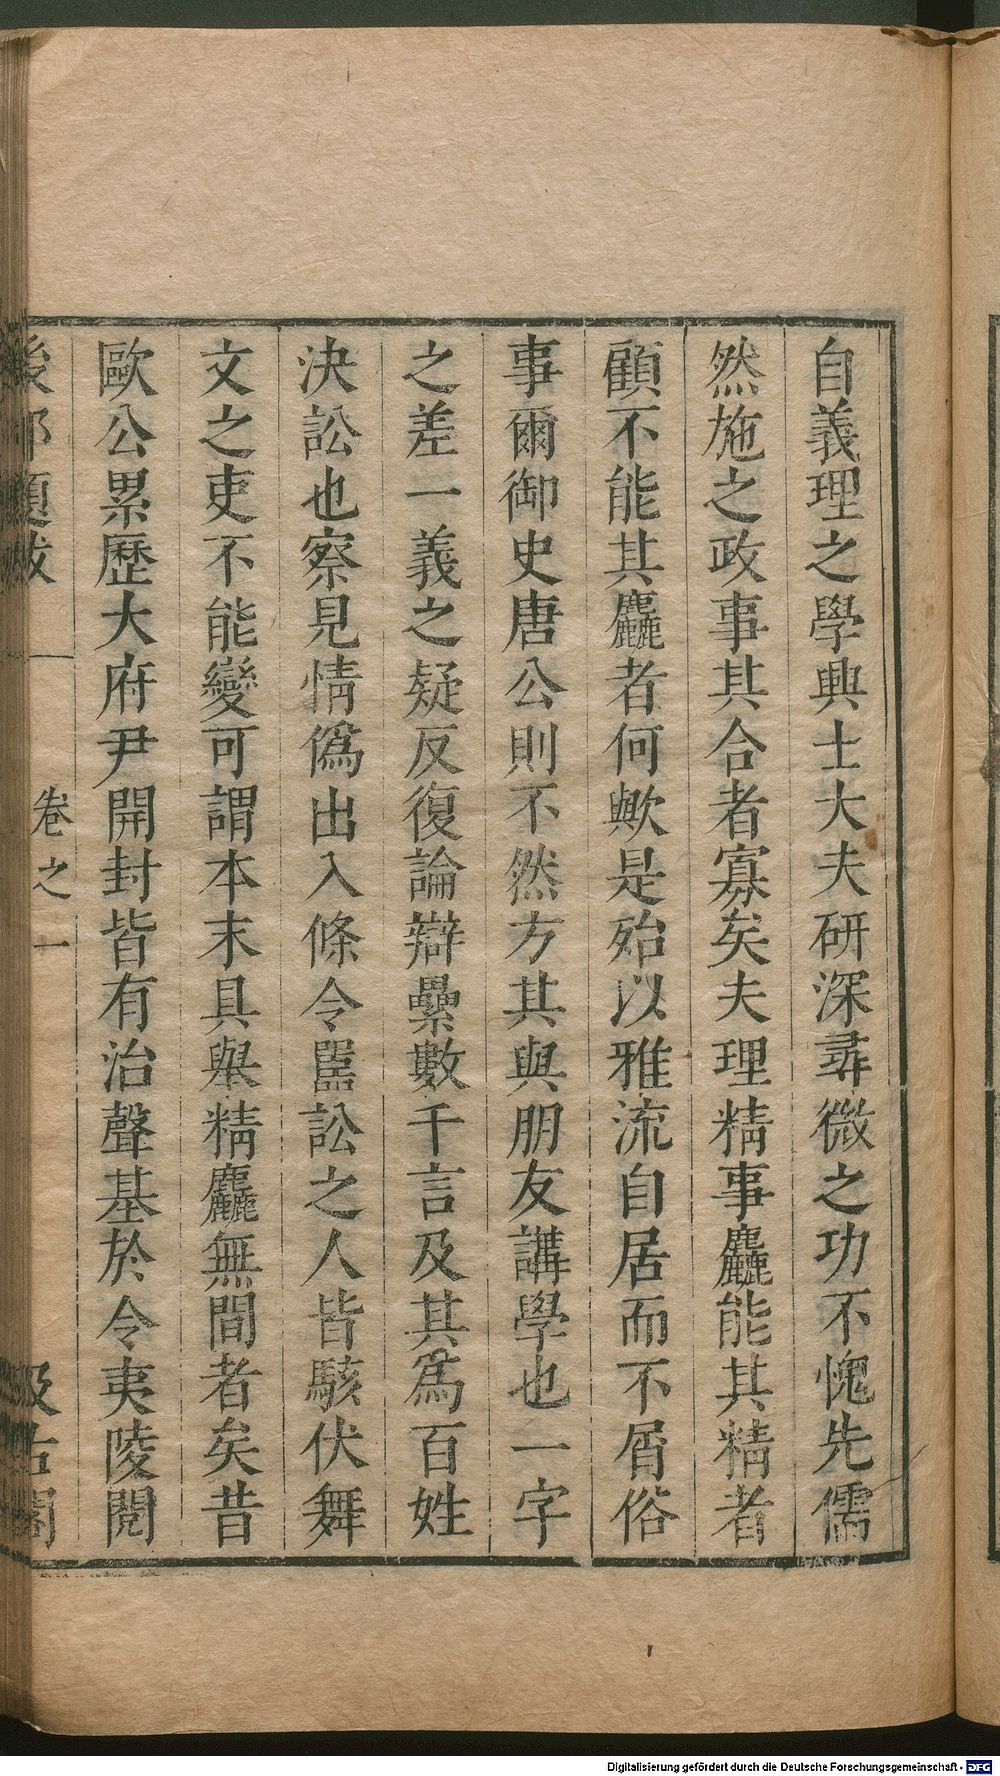 自義理之學興士大夫研深尋微之功不愧先儒
然施之政事其合者寡矣夫理精事麤能其精者
顧不能其麤者何歟是殆以雅流自居而不屑俗
事爾御史唐公則不然方其與朋友講學也一字
之差一義之疑反復論辯纍數千言及其爲百姓
決訟也察見情僞出入條令嚚訟之人皆駭伏舞
文之吏不能變可謂本末具舉精麤無間者矣昔
歐公累歷大府尹開封皆有治聲基於令夷陵閱
後邨題跋 卷之一 汲古閣
Digitalisierung gefördert durch die Deutsche Forschungsgemeinschaft - DFG